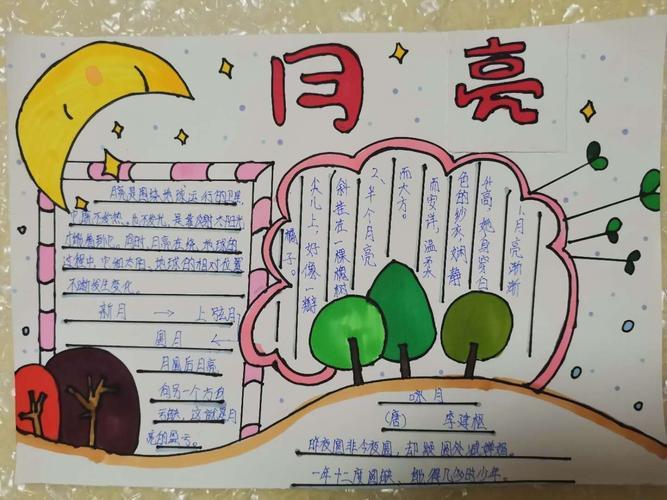 月亮
月亮是围绕地球运行的卫星
它既不发热,也不发光,是靠反射太阳光
才能看到它。同时,月亮在绕地球的
过程中,它和太阳、地球的相对位置
不断发生变化。
新月 → 上弦月
圆月 ←
月圆后月亮
向另一个方向
亏缺,这就是月
亮的盈亏。
1、月亮渐渐
升高,她身穿白
色的纱衣,娴静
而安详,温柔
而大方。
2、半个月亮
斜挂在一棵槐树
尖儿上,好像一瓣
橘子。
咏月
(唐) 李建枢
昨夜圆非今夜圆,却疑圆处减婵娟。
一年十二度圆缺,能得几多时少年。